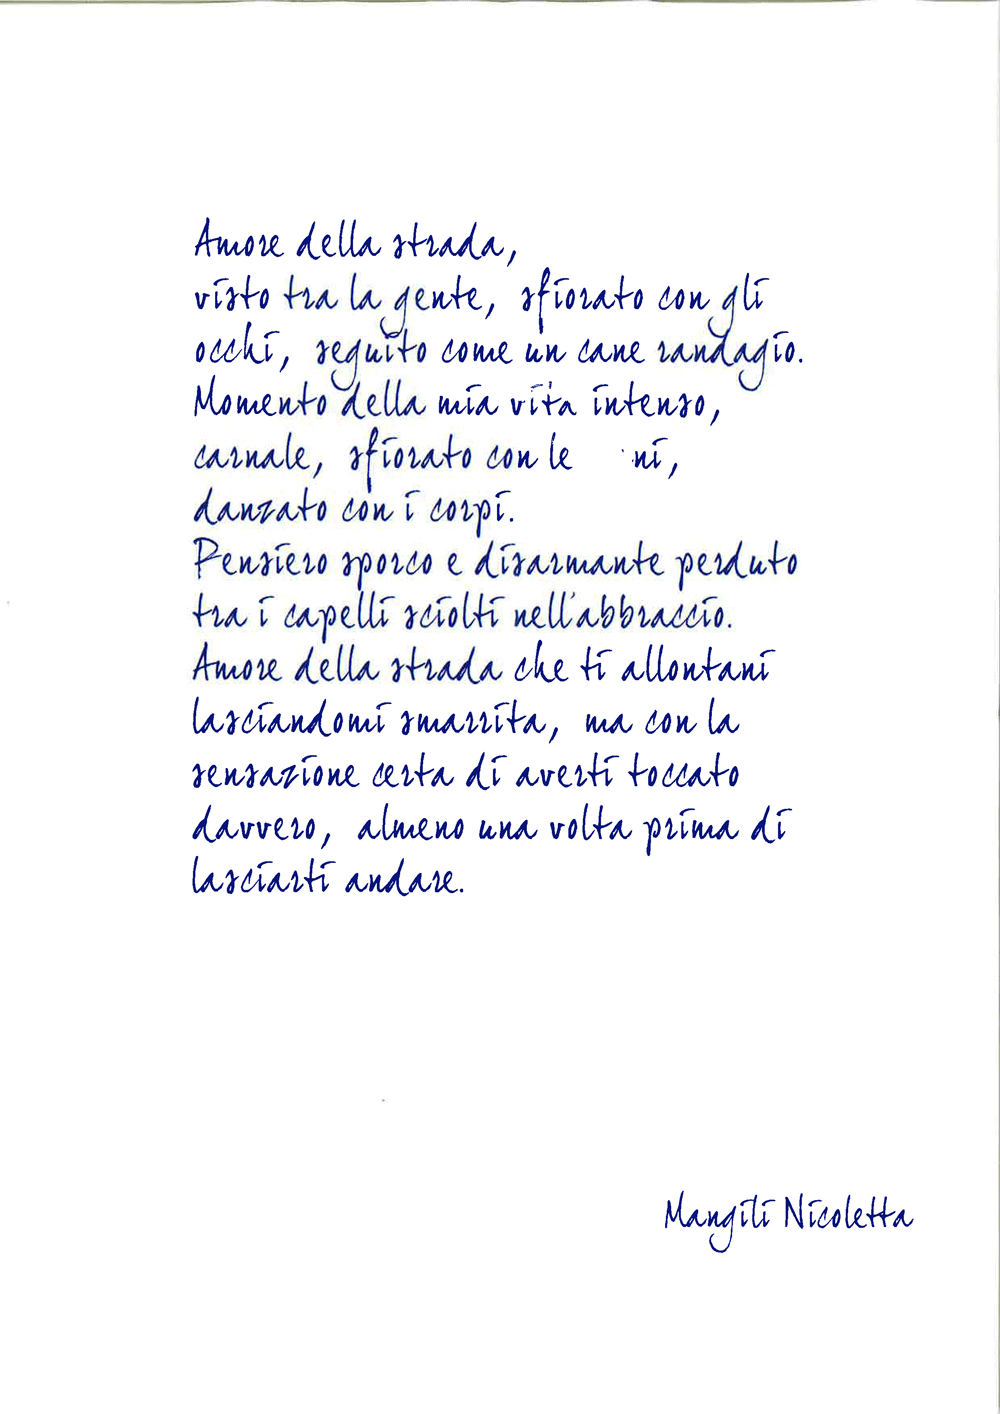 Amore della strada,
visto tra la gente, sfiorato con gli
occhi, seguito come un cane randagio.
Momento della mia vita intenso,
carnale, sfiorato con le ni,
danzato con i corpi.
Pensiero sporco e disarmante perduto
tra i capelli sciolti nell'abbraccio.
Amore della strada che ti allontani
lasciandomi smarrita, ma con la
sensazione certa di averti toccato
davvero, almeno una volta prima di
lasciarti andare.
Mangili Nicoletta